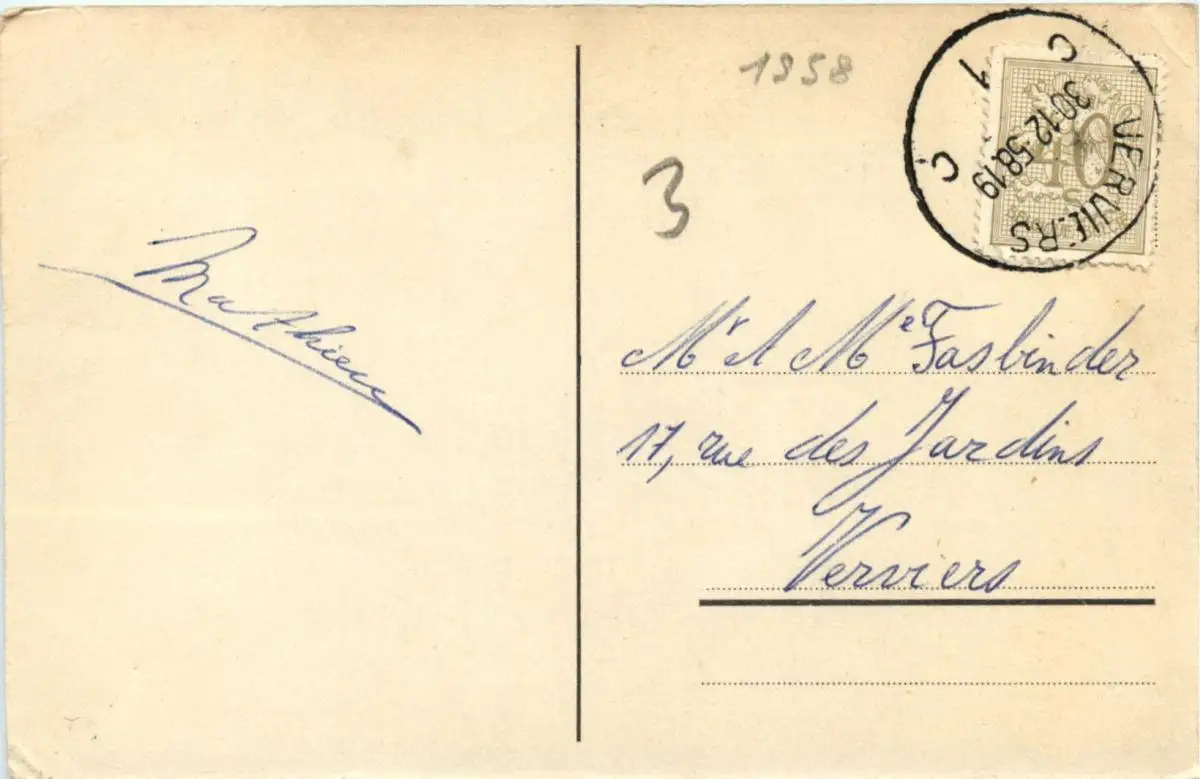 1958
3
VERVIERS
C 1 C
30-12-58 19
40
Mathieu
Mr A Me Fasbinder
17, rue des Jardins
Verviers